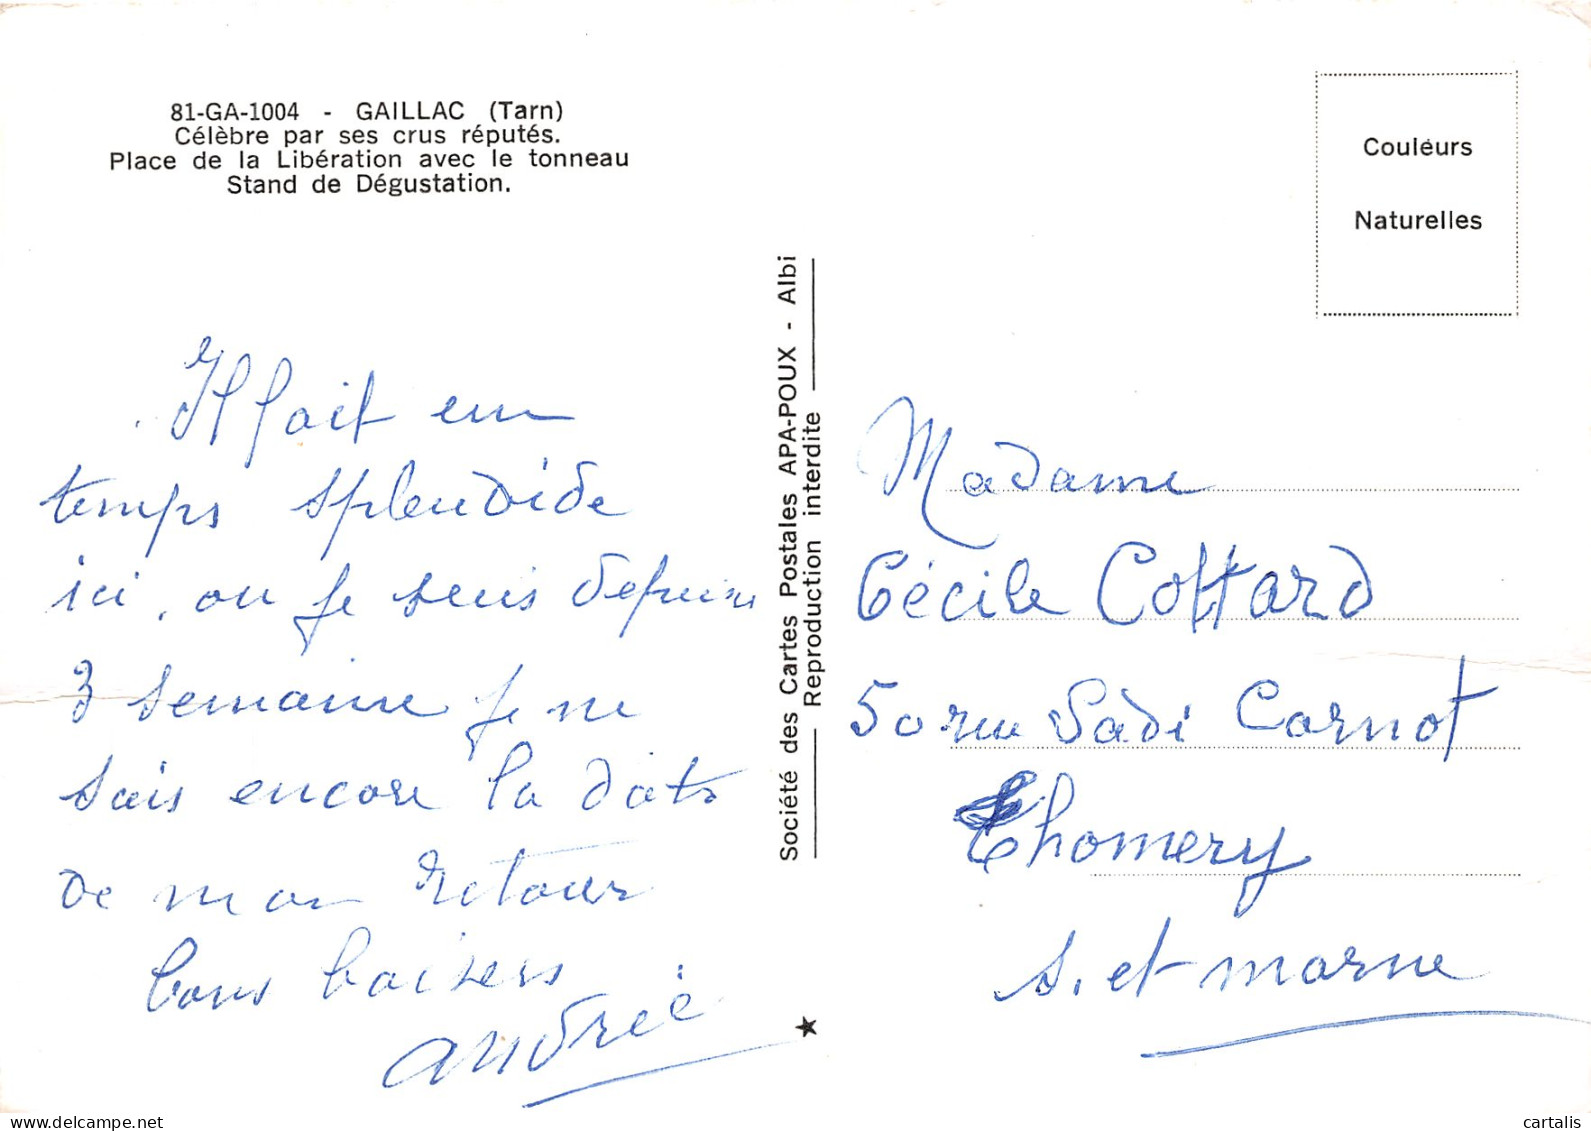 81-GA-1004 - GAILLAC (Tarn)
Célèbre par ses crus réputés.
Place de la Libération avec le tonneau
Stand de Dégustation.
Il fait un
temps splendide
ici, ou je suis depuis
3 semaine je ne
sais encore la date
de mon retour
bons baisers
andrée
Société des Cartes Postales APA-POUX - Albi
Reproduction interdite
Couleurs
Naturelles
Madame
Cécile Cottard
50 rue Sadi Carnot
Thomery
S. et marne
cartalis
delcampe.net